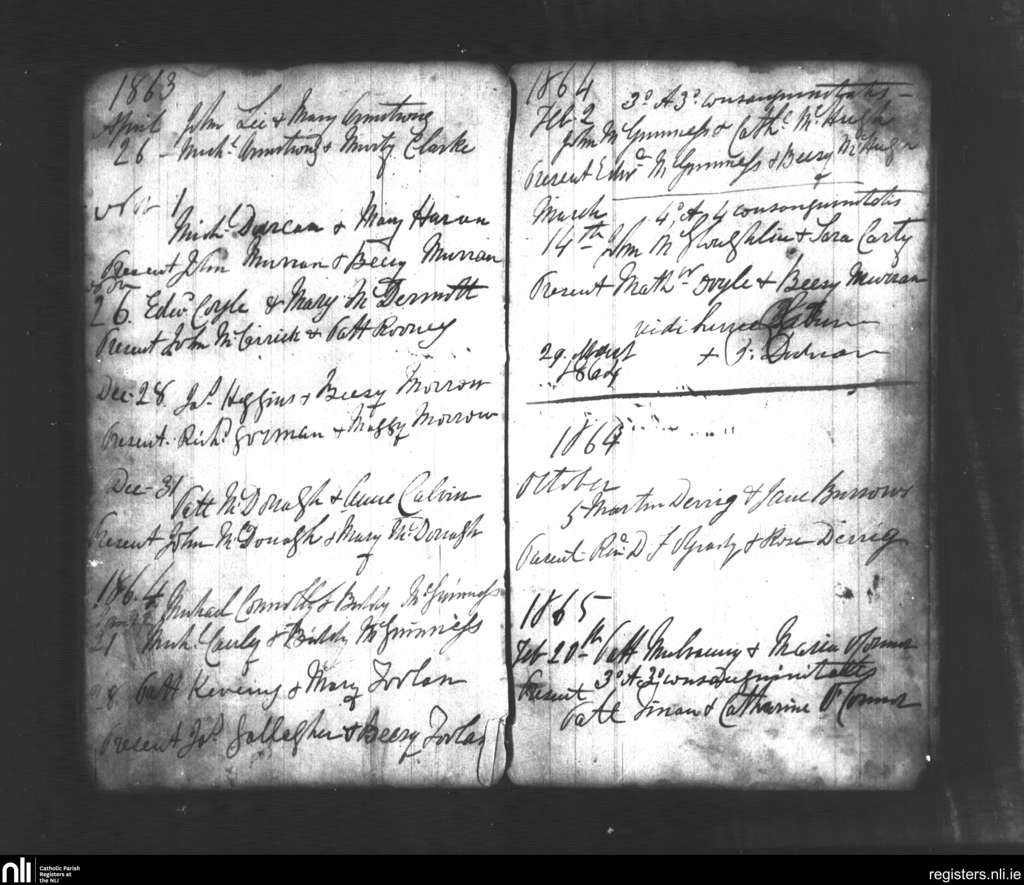 1863
April John Lee & Mary Armstrong
26 - Michl Armstrong & Marty Clarke
Novr 1
Michl Durcan & Mary Haran
Present John Murran & Beesy Murran
26. Edwd Coyle & Mary McDermott
Present John McCarrick & Patt Rooney
Dec. 28 Jas Higgins & Beesy Morrow
Present Richd Gorman & Maggy Morrow
Dec - 31
Patt McDonagh & Anne Calvin
Present John McDonagh & Mary McDonagh
1864
Michael Connolly & Biddy McGuinness
21 Michl Cauley & Biddy McGuinness
28 Patt Keveny & Mary Foolan
Present Jas Gallagher & Beesy Foolan
1864
3o A 3o consanguinitatis -
Feb 2
John McGuinness & Cathe McHugh
Present Edwd McGuinness & Beesy McHugh
March 4o A 4 consanguinitatis
14th John McGloughlin & Sara Carty
Present Mathw Doyle & Beesy Murran
vidi hunc
29.
1864
October
5 Martin Derrig & Jane Burrows
Present Revd D. F. Ogrady & Rose Derrig
1865
Feb 20th Patt Mulvaney & Maria O'Connor
3o A 3o consanguinitatis
Present
Patt Finan & Catharine O'Connor
nli
Catholic Parish
Registers at
the NLI
registers.nli.ie